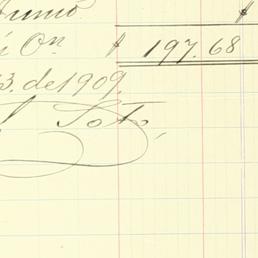 $
On $ 197.68
3. de 1909.
Soto